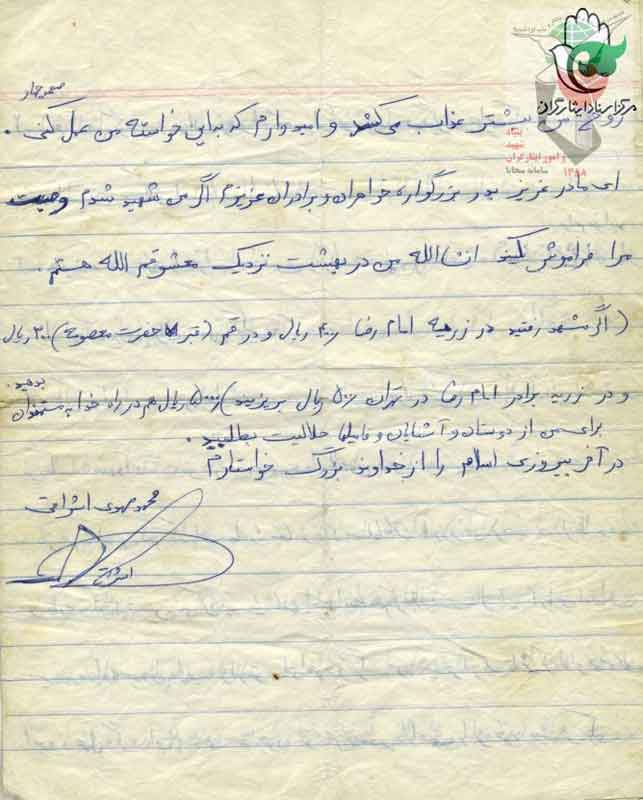 صفحه چهار
مرکز اسناد ایثارگران
بنیاد
شهید
و امور ایثارگران
۱۳۸۸
سامانه سجایا
روح من بیشتر عذاب می‌کشد و امیدوارم که به این خواسته من عمل کنی.
ای مادر عزیز پدر بزگوار، خواهران و برادران عزیزم اگر من شهید شدم وصیت
مرا فراموش نکیند انشاالله من در بهشت نزدیک معشوقم الله هستم.
(اگر مشهد رفتید در زریه امام رضا ۴۰۰ ریال و در قم (قبر حضرت معصومه) ۳۰۰ ریال
و در زریه برادر امام رضا در تهران ۵۰۰ ریال بریزید) ۵۰۰۰ ریال هم در راه خدا به مستحقان
بدهید.
برای من از دوستان و آشنایان و فامیلها حلالیت بطلبید.
در آخر پیروزی اسلام را از خداوند بزرگ خواستارم
محمد مهدی اشراقی